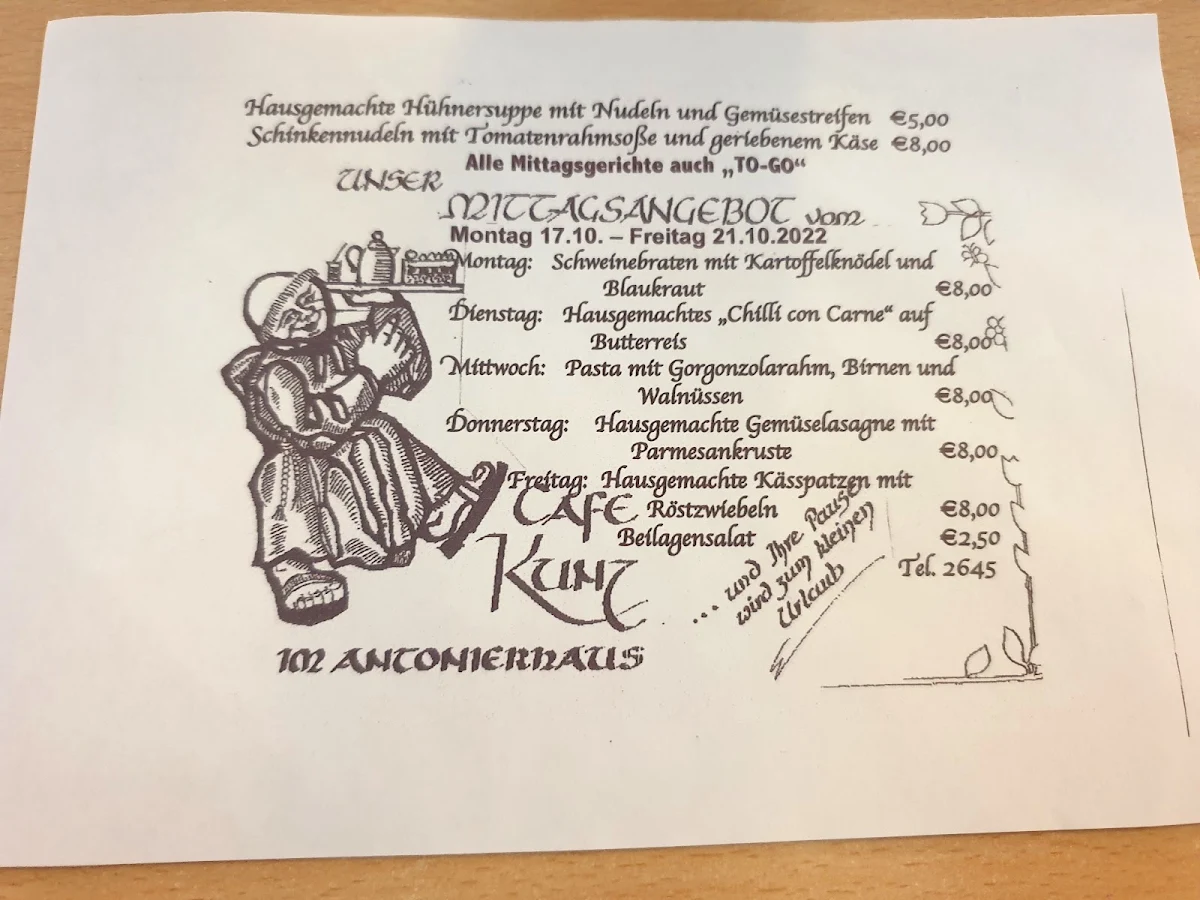 Hausgemachte Hühnersuppe mit Nudeln und Gemüsestreifen €5,00
Schinkennudeln mit Tomatenrahmsoße und geriebenem Käse €8,00
Alle Mittagsgerichte auch „TO-GO“
UNSER
MITTAGSANGEBOT vom
Montag 17.10. – Freitag 21.10.2022
Montag: Schweinebraten mit Kartoffelknödel und
Blaukraut €8,00
Dienstag: Hausgemachtes „Chilli con Carne“ auf
Butterreis €8,00
Mittwoch: Pasta mit Gorgonzolarahm, Birnen und
Walnüssen €8,00
Donnerstag: Hausgemachte Gemüselasagne mit
Parmesankruste €8,00
Freitag: Hausgemachte Kässpatzen mit
Röstzwiebeln €8,00
Beilagensalat €2,50
Tel. 2645
CAFE
KUNZ
IM ANTONIERHAUS
... und Ihre Pause
wird zum kleinen
Urlaub